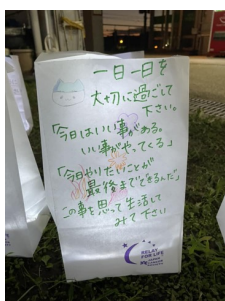 一日一日を
大切に過ごして
下さい。
「今日はいい事がある。
いい事がやってくる」
「今日やりたいことが
最後までできるんだ」
この事を思って生活して
みて下さい
RELAY
FOR LIFE